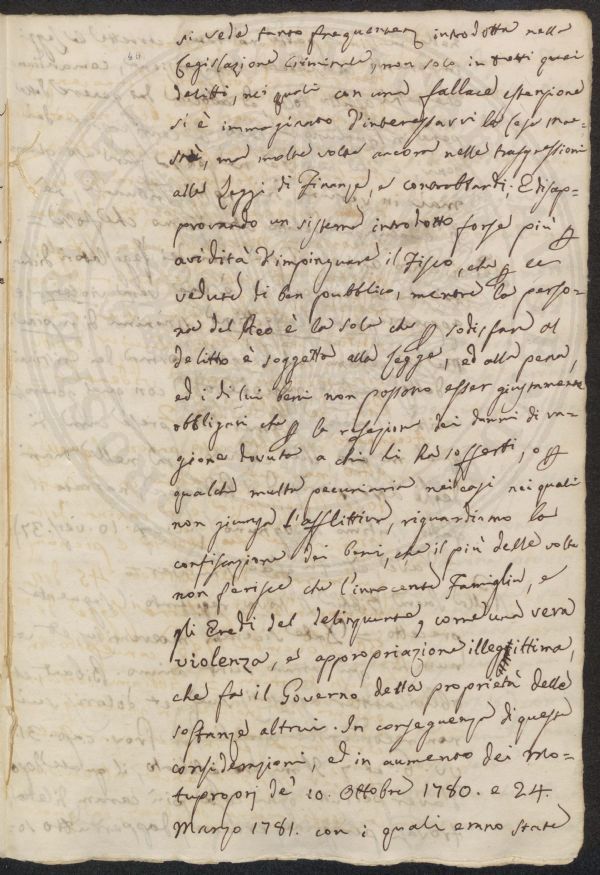 si vede tanto frequentem. introdotta nella
Legislazione Criminale, non solo in tutti quei
delitti, nei quali con una fallace estensione
si è immaginato d'interessarvi la lesa mae-
stà, ma molte volte ancora nelle trasgressioni
alle Leggi di Finanze, e contrabbandi; E disap-
provando un sistema introdotto forse più p
avidità d'impinguare il Fisco, che p le
vedute di ben pubblico, mentre la perso-
na del Reo è la sola che p sodisfare al
delitto è soggetta alla legge, ed alla pena,
ed i di lui beni non possono esser giustamente
obbligati che p la refezione dei danni di ra-
gione dovuta a chi li ha sofferti, o p
qualche multa pecuniaria nei casi nei quali
non giunga l'afflittiva, riguardiamo la
confiscazione dei beni, che il più delle volte
non ferisce che l'innocente Famiglia, e
gli Eredi del delinquente, come una vera
violenza, ed appropriazione illegittima,
che fa il Governo della proprietà delle
sostanze altrui. In conseguenza di queste
considerazioni, ed in aumento dei Mo-
tuproprj de' 10. Ottobre 1780. e 24.
Marzo 1781. con i quali erano state